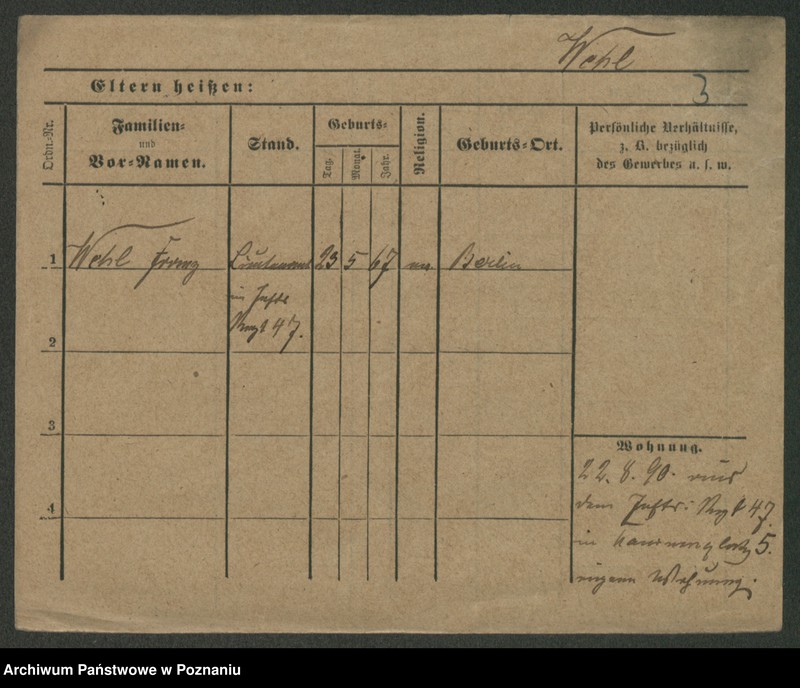 Wehl
3
Eltern heißen:
Ordn-Nr.
Familien-
und
Vor-Namen.
Stand.
Geburts-
Tag.
Monat.
Jahr.
Religion.
Geburts-Ort.
Persönliche Verhältnisse,
z. B. bezüglich
des Gewerbes u. s. w.
1 Wehl Franz Lieutenant 23 5 67 ev. Berlin
im Inftr
Regt 47.
2
3
Wohnung.
22.8.90. aus
dem Inftr: Regt 47
in
5.
eigene Wohnung.
4
Archiwum Państwowe w Poznaniu